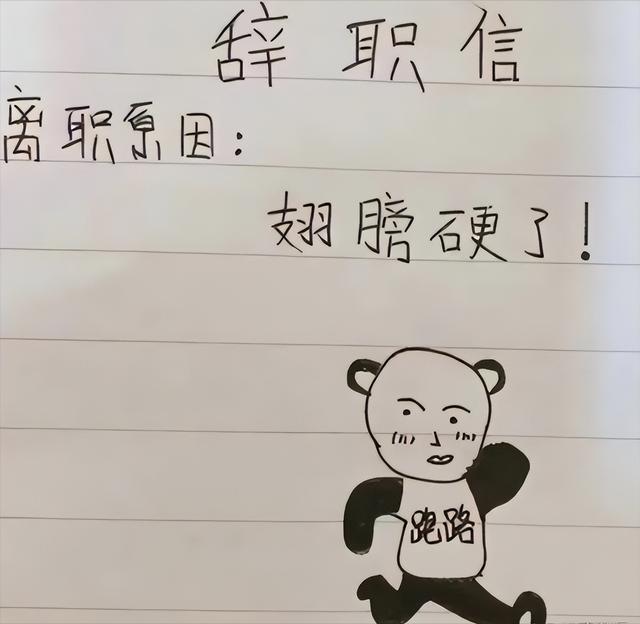 辞职信
离职原因：
翅膀硬了！
跑路